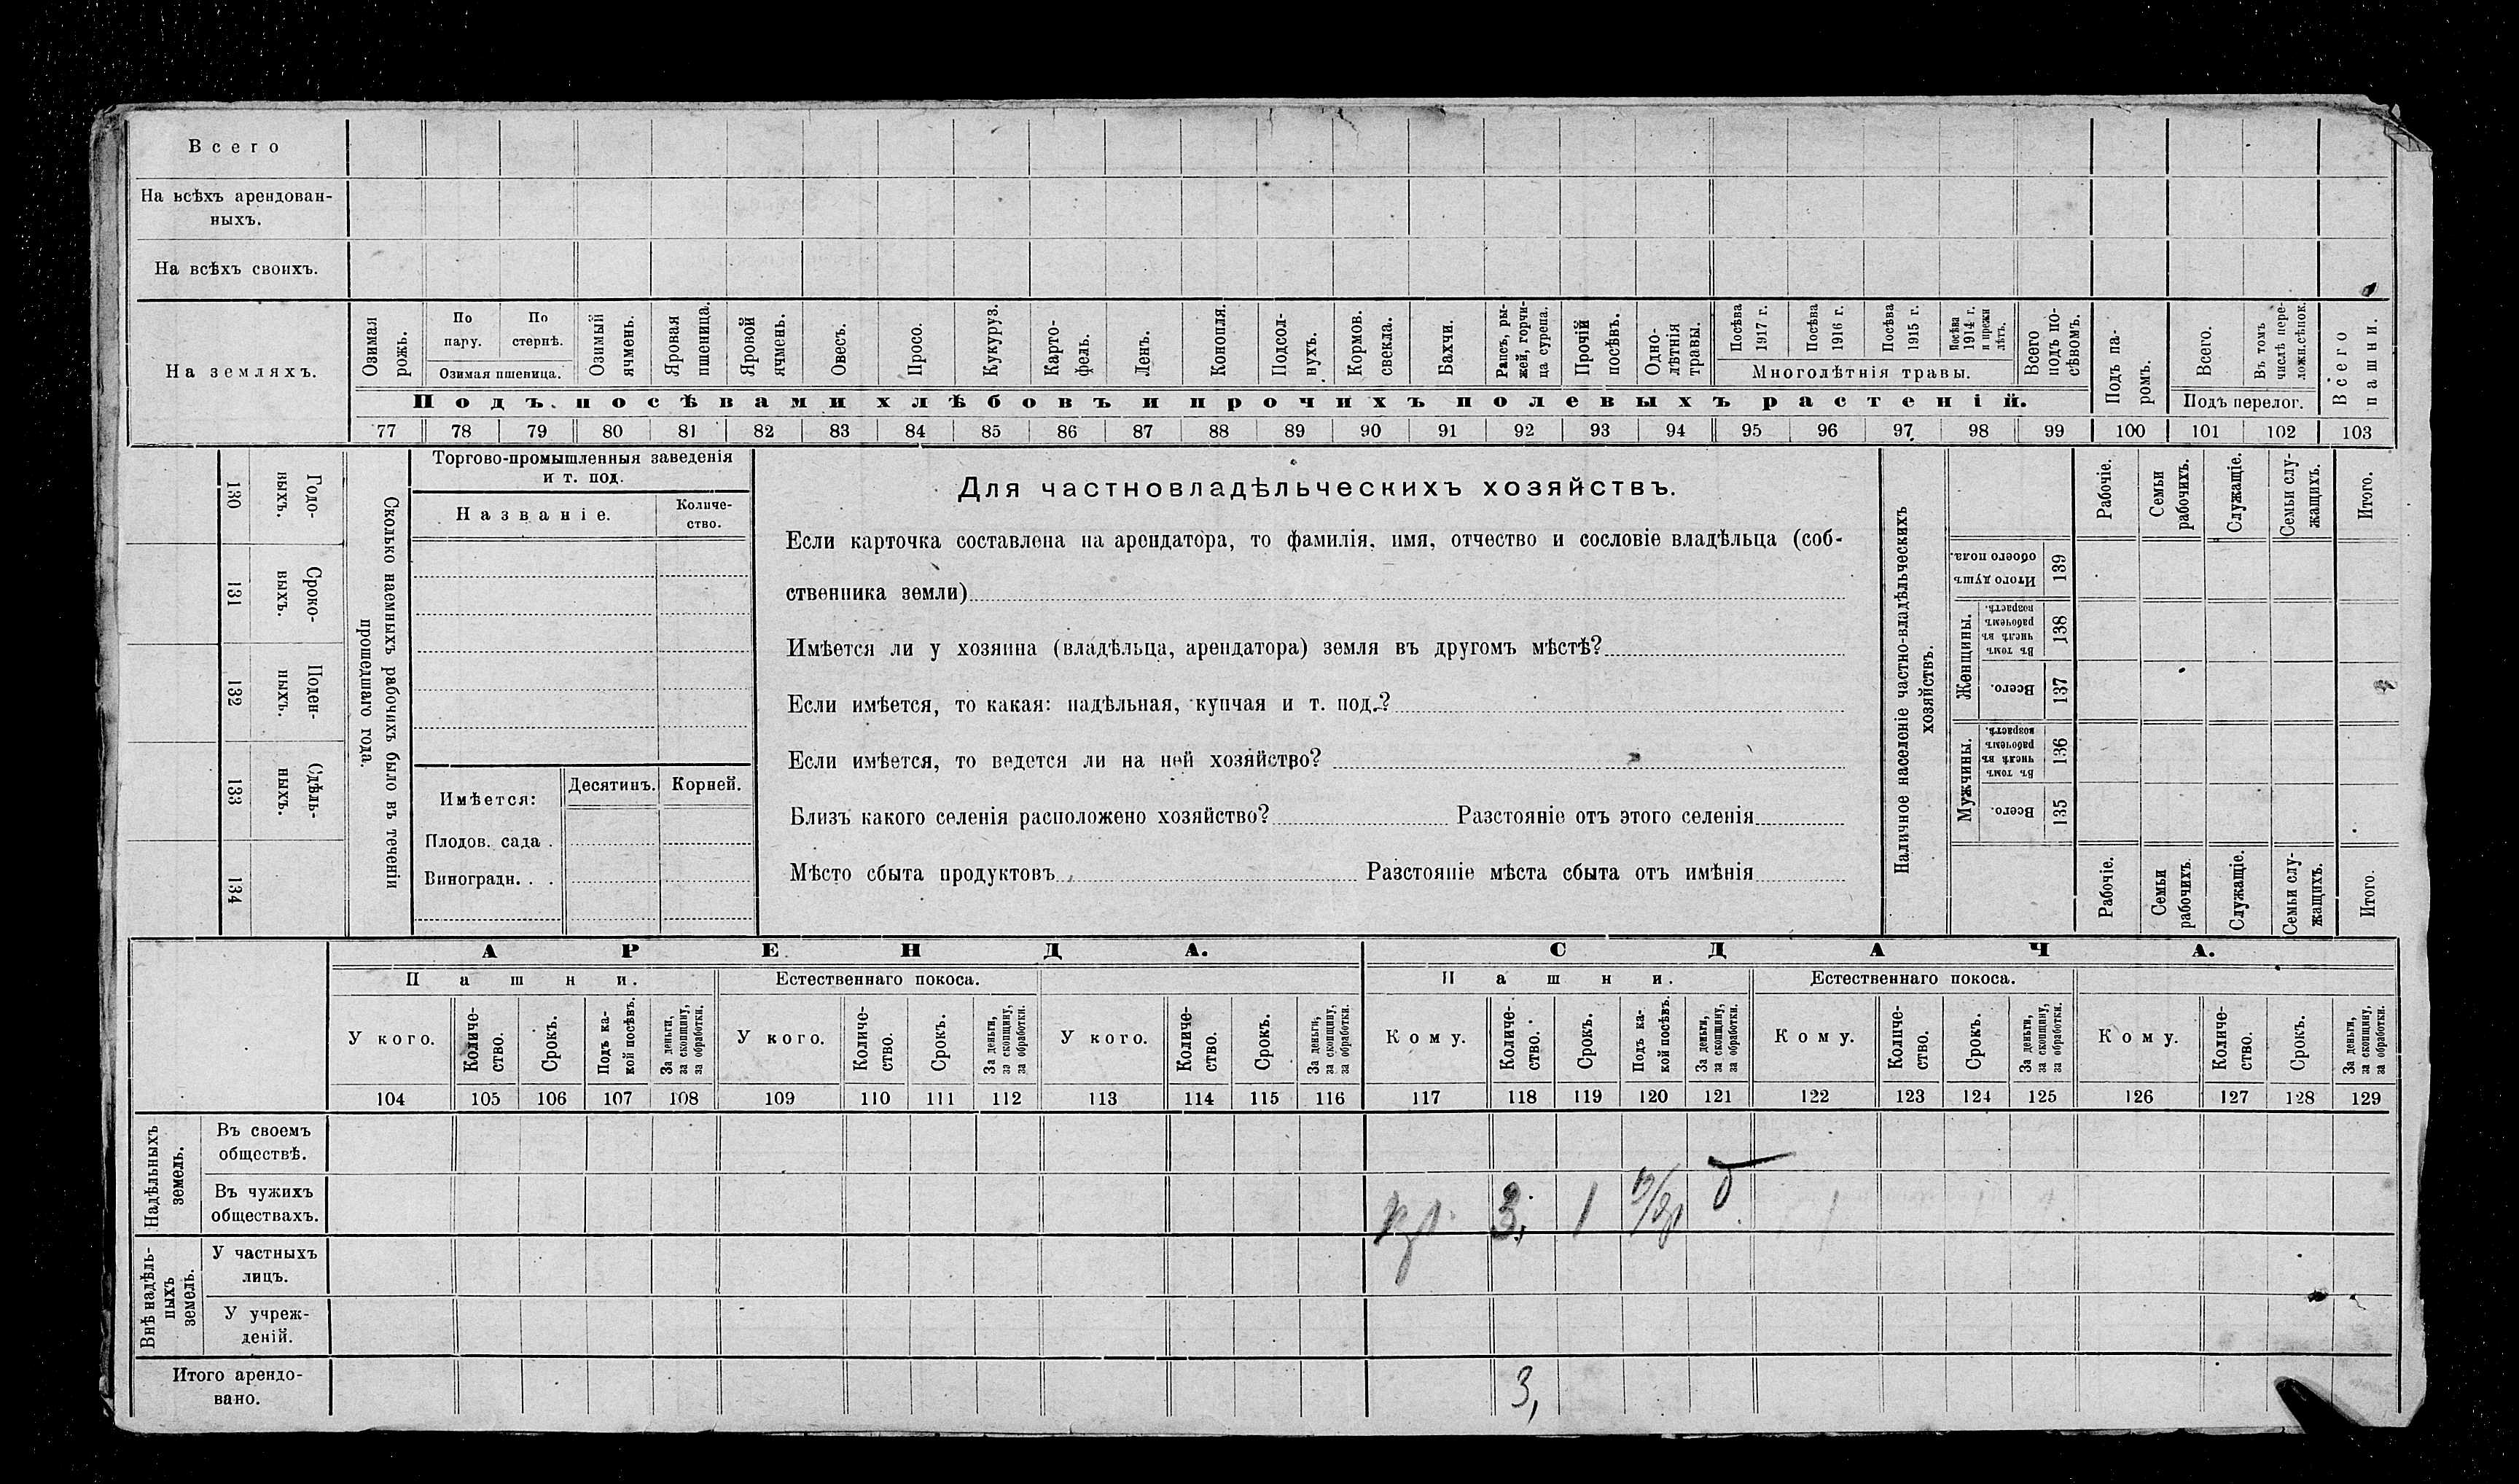 Всего
На всѣхъ арендован-
ныхъ.
На всѣхъ своихъ.
На земляхъ.
Озимая рожь.
По пару.
По стернѣ.
Озимая пшеница.
Озимый ячмень.
Яровая пшеница.
Яровой ячмень.
Овесъ.
Просо.
Кукуруз.
Карто-
фель.
Ленъ.
Конопля.
Подсол-
нухъ.
Кормов.
свекла.
Бахчи.
Рапсъ, ры-
жей, горчи-
ца сурепа.
Прочій
посѣвъ.
Одно-
лѣтнія
травы.
Посѣва
1917 г.
Посѣва
1916 г.
Посѣва
1915 г.
Посѣва
1914 г.
и прежн
лѣтъ.
Многолѣтнія травы.
Всего
подъ по-
сѣвомъ.
Подъ па-
ромъ.
Всего.
Въ томъ
числѣ пере-
ложн.сѣнок.
Подъ перелог.
Всего
пашни.
Подъ посѣвами хлѣбовъ и прочихъ полевыхъ растеній.
77 78 79 80 81 82 83 84 85 86 87 88 89 90 91 92 93 94 95 96 97 98 99 100 101 102 103
Сколько наемныхъ рабочихъ было въ теченіи
прошедшаго года.
Годо-
выхъ.
130
Сроко-
выхъ.
131
Поден-
ныхъ.
132
Сдѣль-
ныхъ.
133
134
Торгово-промышленныя заведенія
и т. под.
Названіе.
Количе-
ство.
Имѣется:
Десятинъ.
Корней.
Плодов. сада .
Виноградн. . .
Для частновладѣльческихъ хозяйствъ.
Если карточка составлена на арендатора, то фамилія, имя, отчество и сословіе владѣльца (соб-
ственника земли)
Имѣется ли у хозяина (владѣльца, арендатора) земля въ другомъ мѣстѣ?
Если имѣется, то какая: надѣльная, купчая и т. под.?
Если имѣется, то ведется ли на ней хозяйство?
Близъ какого селенія расположено хозяйство? Разстояніе отъ этого селенія
Мѣсто сбыта продуктовъ Разстояніе мѣста сбыта отъ имѣнія
Наличное населеніе частно-владѣльческихъ
хозяйствъ.
Рабочіе.
Семьи
рабочихъ.
Служащіе.
Семьи слу-
жащихъ.
Итого.
Итого душъ
обоего пола.
139
Женщины.
Въ томъ
числѣ въ
рабочемъ
возрастѣ.
138
Всего.
137
Мужчины.
Въ томъ
числѣ въ
рабочемъ
возрастѣ.
136
Всего.
135
Рабочіе.
Семьи
рабочихъ.
Служащіе.
Семьи слу-
жащихъ.
Итого.
АРЕНДА.
СДАЧА.
Пашни.
Естественнаго покоса.
Пашни.
Естественнаго покоса.
У кого.
Количе-
ство.
Срокъ.
Подъ ка-
кой посѣвъ.
За деньги,
за скопщину,
за обработки.
У кого.
Количе-
ство.
Срокъ.
За деньги,
за скопщину,
за обработки.
У кого.
Количе-
ство.
Срокъ.
За деньги,
за скопщину,
за обработки.
Кому.
Количе-
ство.
Срокъ.
Подъ ка-
кой посѣвъ.
За деньги,
за скопщину,
за обработки.
Кому.
Количе-
ство.
Срокъ.
За деньги,
за скопщину,
за обработки.
Кому.
Количе-
ство.
Срокъ.
За деньги,
за скопщину,
за обработки.
104 105 106 107 108 109 110 111 112 113 114 115 116 117 118 119 120 121 122 123 124 125 126 127 128 129
Надѣльныхъ
земель.
Въ своемъ
обществѣ.
Въ чужихъ
обществахъ.
3, 1
Внѣ надѣль-
ныхъ
земель.
У частныхъ
лицъ.
У учреж-
деній.
Итого арендо-
вано.
3,